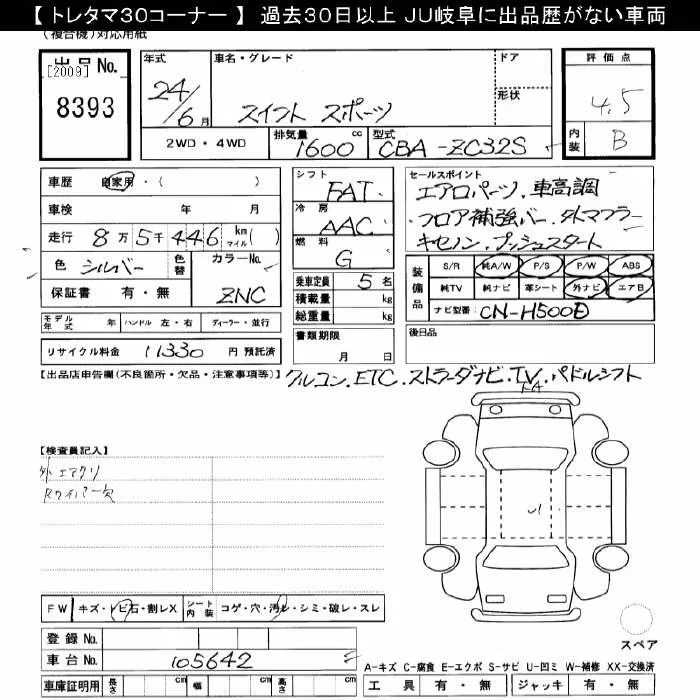 【 トレタマ30コーナー 】 過去30日以上 JU岐阜に出品歴がない車両
(複合機)対応用紙
出品 No.
[2009]
8393
年式
24/6月
車名・グレード
スイフト スポーツ
ドア
形状
評価点
4.5
内装 B
2WD・4WD
排気量 1600 cc
型式 CBA-ZC32S
車歴 自家用・( )
車検 年 月
走行 8万5千446 km マイル( )
色 シルバー
色替
カラーNo. ZNC
保証書 有・無
シフト FAT
冷房 AAC
燃料 G
乗車定員 5名
積載量 kg
総重量 kg
書類期限
月 日
セールスポイント
エアロパーツ、車高調
フロア補強バー、タトマフラー
キセノン、プッシュスタート
装備品
S/R 純A/W P/S P/W ABS
純TV 純ナビ 革シート 外ナビ エアB
ナビ型番: CN-H500D
後日品
モデル年式 年 ハンドル 左・右 ディーラー・並行
リサイクル料金 11330 円 預託済
【出品店申告欄(不良箇所・欠品・注意事項等)】
クルコン、ETC、ストラーダナビ、TV、パドルシフト
【検査員記入】
外 エアクリ
Rワイパー欠
FW キズ・トビ石・割レX シート内装 コゲ・穴・汚レ・シミ・破レ・スレ
登録 No.
車台 No. 105642
車庫証明用 長さ cm 幅 cm 高さ cm
スペア
A-キズ C-腐食 E-エクボ S-サビ U-凹ミ W-補修 XX-交換済
工具 有・無 ジャッキ 有・無